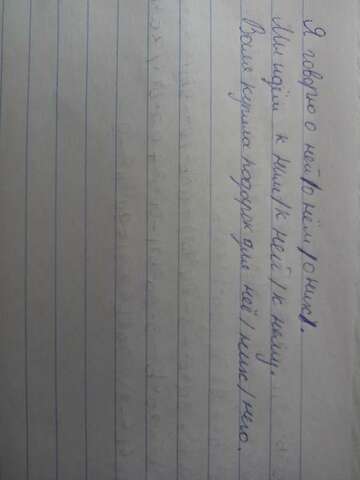 Я говорю о ней/о нём/о них/.
Мы идём к ним/к ней/к нему.
Валя купила подарок для неё/них/него.